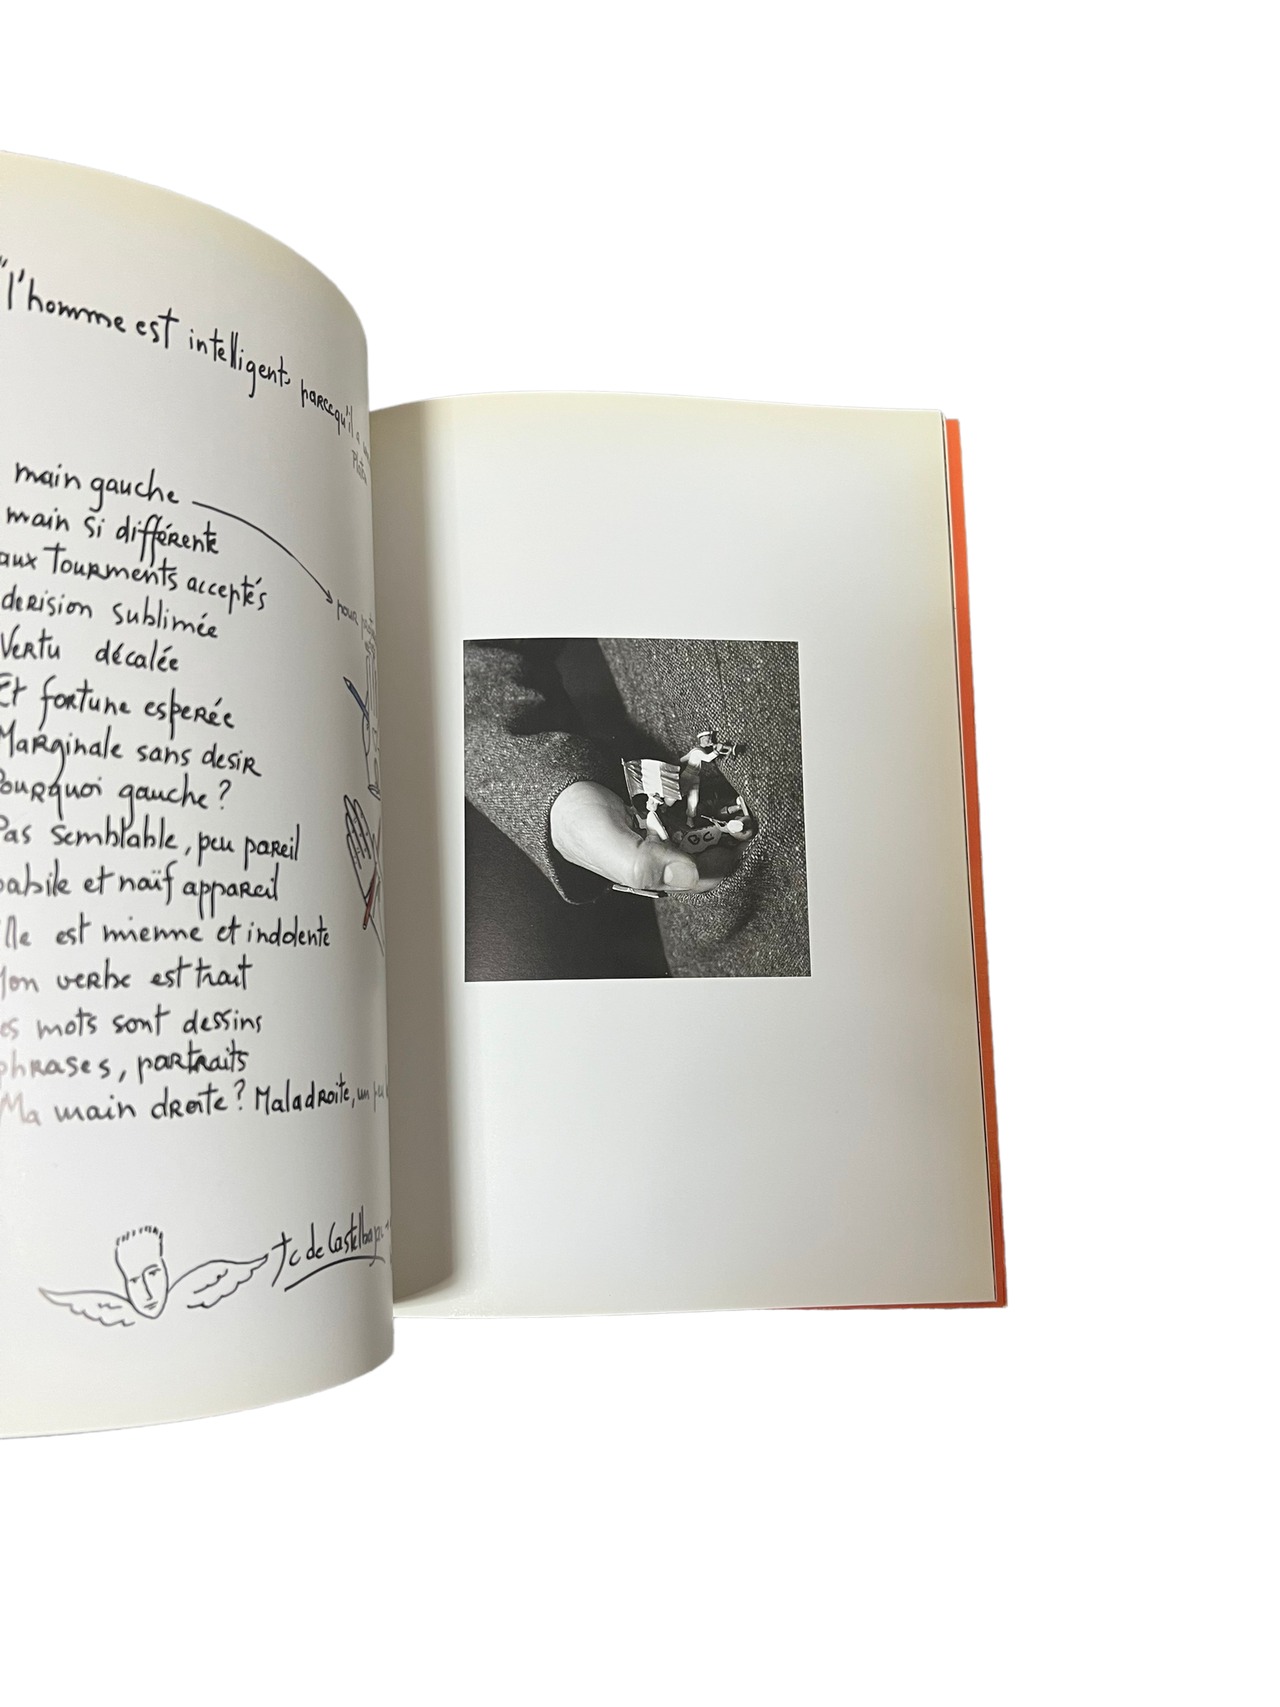 "l'homme est intelligent, parcequ'il a
main gauche
main si différente
pour
aux tourments acceptés
derision sublimée
Vertu décalée
Et fortune esperée
Marginale sans desir
Pourquoi gauche?
Pas semblable, peu pareil
habile et naïf appareil
est mienne et indolente
verbe est trait
mots sont dessins
phrases, portraits
Ma main droite? Maladroite, un peu
Jc de Castelbajac